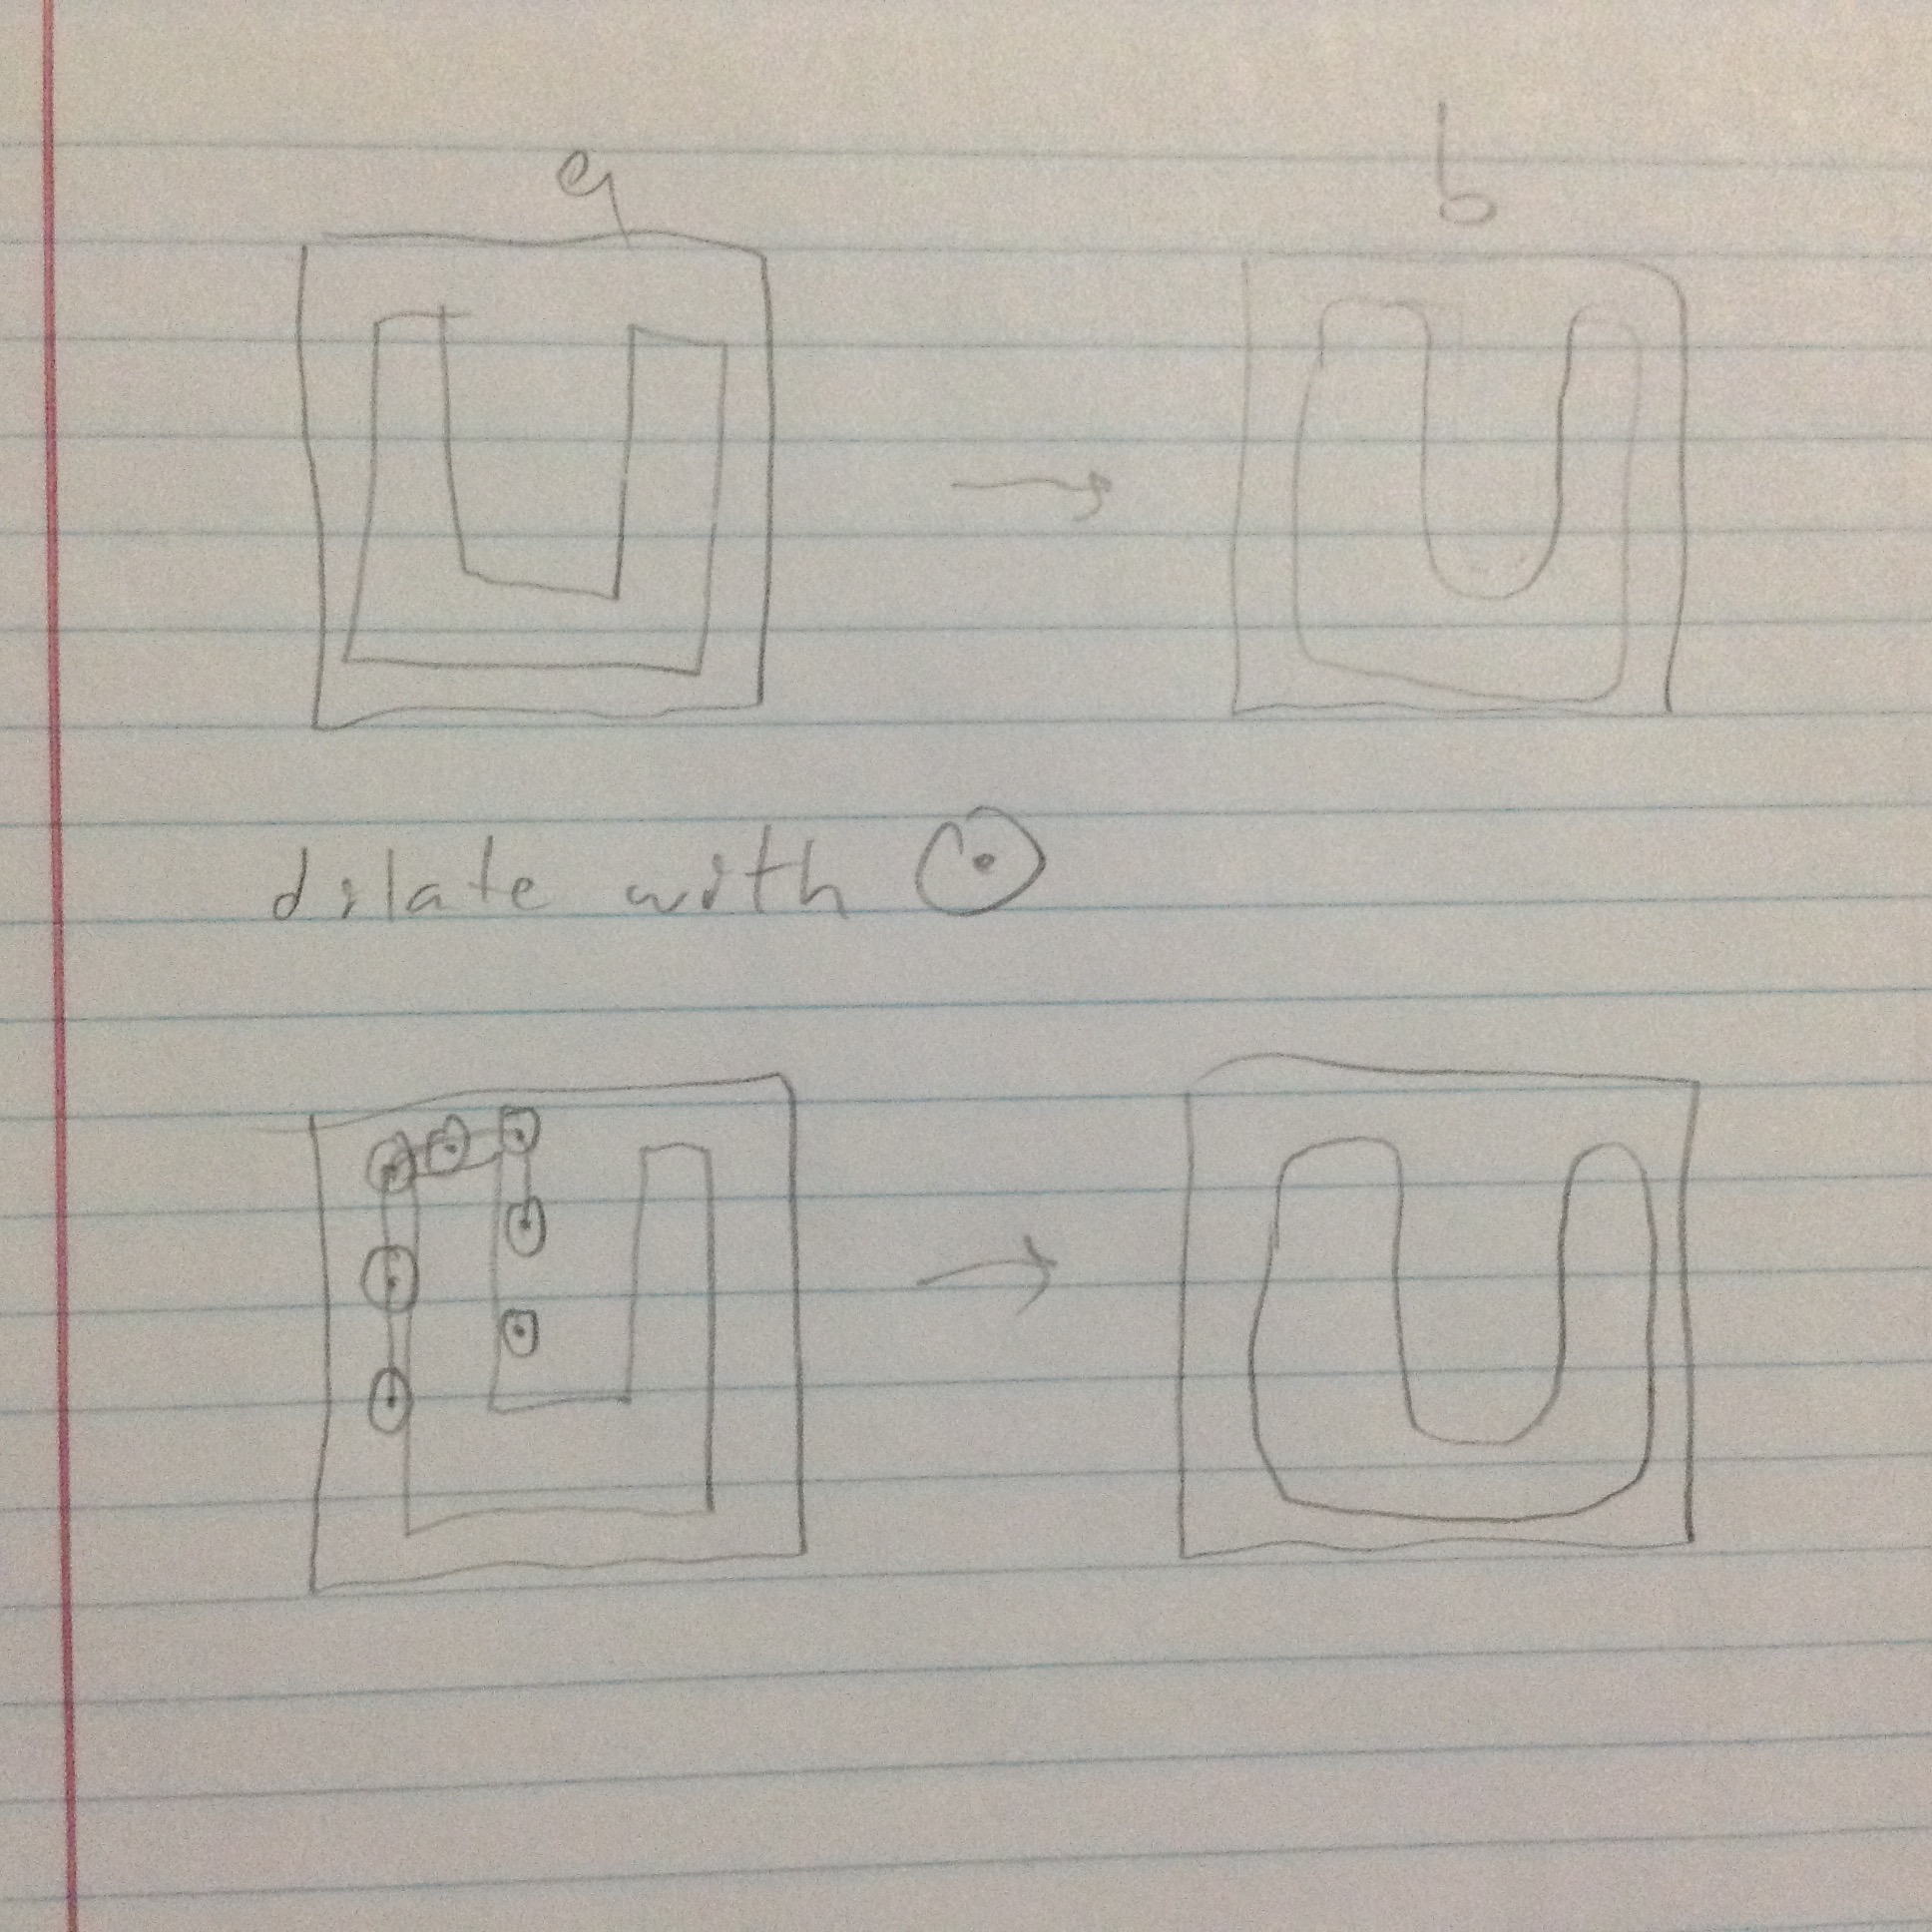 a
b
dilate with